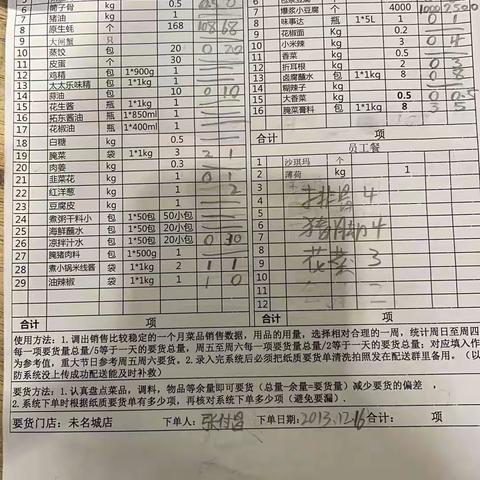 6 筒子骨 kg 0.5
7 猪油 kg 1
8 原生蚝 个 168 108 68
9 大闸蟹 只
10 蒸饺 包 20 0 20
11 皮蛋 个 30
12 鸡精 包 1*900g 1
13 太太乐味精 包 1*1kg 1
14 蒜油 包 10 0 10
15 花生酱 瓶 1*1kg 1
16 拓东酱油 包 1*850ml 1
17 花椒油 瓶 1*400ml 1
18 白糖 kg 0.5
19 腌菜 袋 1*1kg 3 2 1
20 肉姜 kg 0.3
21 韭菜花 kg 1 0 1
22 红洋葱 kg 1 2
23 豆腐皮 kg
24 煮粥干料小 包 1*50包 50小包
25 海鲜蘸水 包 1*50包 20小包
26 凉拌汁水 包 1*50包 20小包 0 30
27 腌猪肉料 包 1*500g 1
28 煮小锅米线酱 袋 1*1kg 2 1 1
29 油辣椒 袋 1*1kg 1 1 0
合计 项
7 爆浆小豆腐 个 4000
8 味事达 瓶 1*5L 1 0 1
9 花椒面 kg 0.2
10 小米辣 kg 3 0 4
11 香菜 kg 0.5
12 折耳根 kg 2 0 3
13 卤腐蘸水 包 1*1kg 8 0 8
14 糊辣子 kg
15 大香菜 kg 0.5 0 0.5
16 腌菜膏料 包 1*1kg 8 3 5
合计 项
员工餐
1 沙琪玛 个
2 薄荷 kg 1
3 排骨 4
4
5
6
7
8 花菜 3
9
10
11
12
合计 项
使用方法：1.调出销售比较稳定的一个月菜品销售数据，用品的用量，选择相对合理的一周，统计周日至周四
每一项要货量总量/5等于一天的要货总量，周五至周六每一项要货量总量/2等于一天的要货总量；对应填入作
为参考值，重大节日参考周五周六要货。2.录入完系统后必须把纸质要货单清洗拍照发在配送群里备用。（以
防系统没上传成功配送能及时补救）
要货方法：1.认真盘点菜品，调料，物品等余量即可要货（总量一余量=要货量）减少要货的偏差 ，
2.系统下单时根据纸质要货单有多少项，再核对系统下单多少项（避免要漏）.
要货门店：未名城店 下单人： 下单日期：2013.12.16 合计： 项